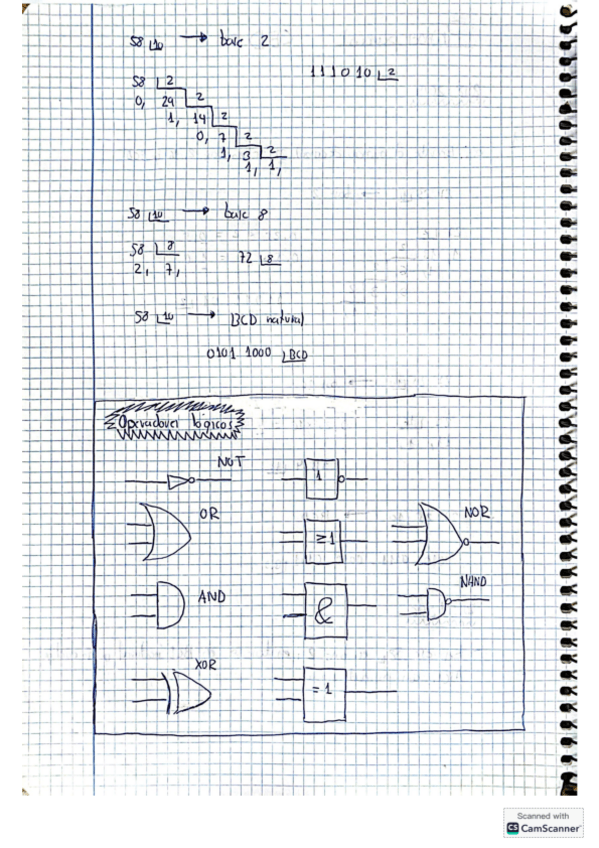 58 10 → base 2
111010 2
58 2
0, 29 2
1, 14 2
0, 7 2
1, 3 2
1, 1,
58 10 → base 8
58 8
2, 7,
72 8
58 10 → BCD natural
0101 1000 BCD
Operadores lógicos
NOT
1
OR
≥1
NOR
AND
&
NAND
XOR
=1
Scanned with
CS CamScanner